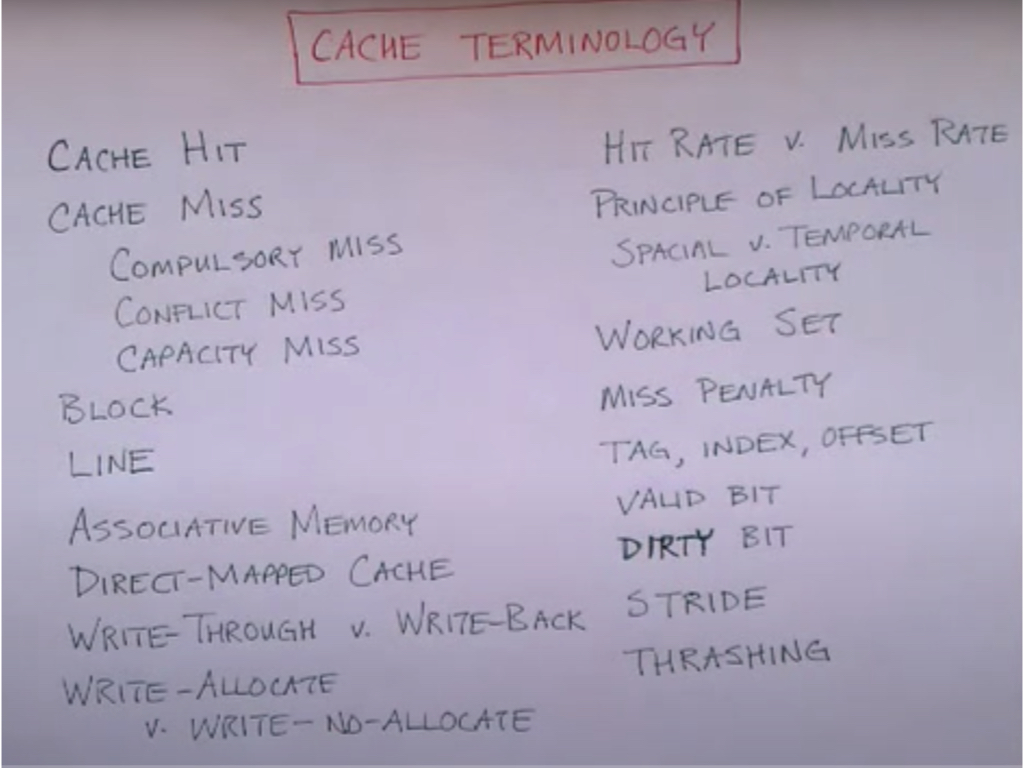 CACHE TERMINOLOGY
CACHE HIT
CACHE MISS
COMPULSORY MISS
CONFLICT MISS
CAPACITY MISS
BLOCK
LINE
ASSOCIATIVE MEMORY
DIRECT-MAPPED CACHE
WRITE-THROUGH v. WRITE-BACK
WRITE-ALLOCATE
v. WRITE-NO-ALLOCATE
HIT RATE v. MISS RATE
PRINCIPLE OF LOCALITY
SPACIAL v. TEMPORAL
LOCALITY
WORKING SET
MISS PENALTY
TAG, INDEX, OFFSET
VALID BIT
DIRTY BIT
STRIDE
THRASHING